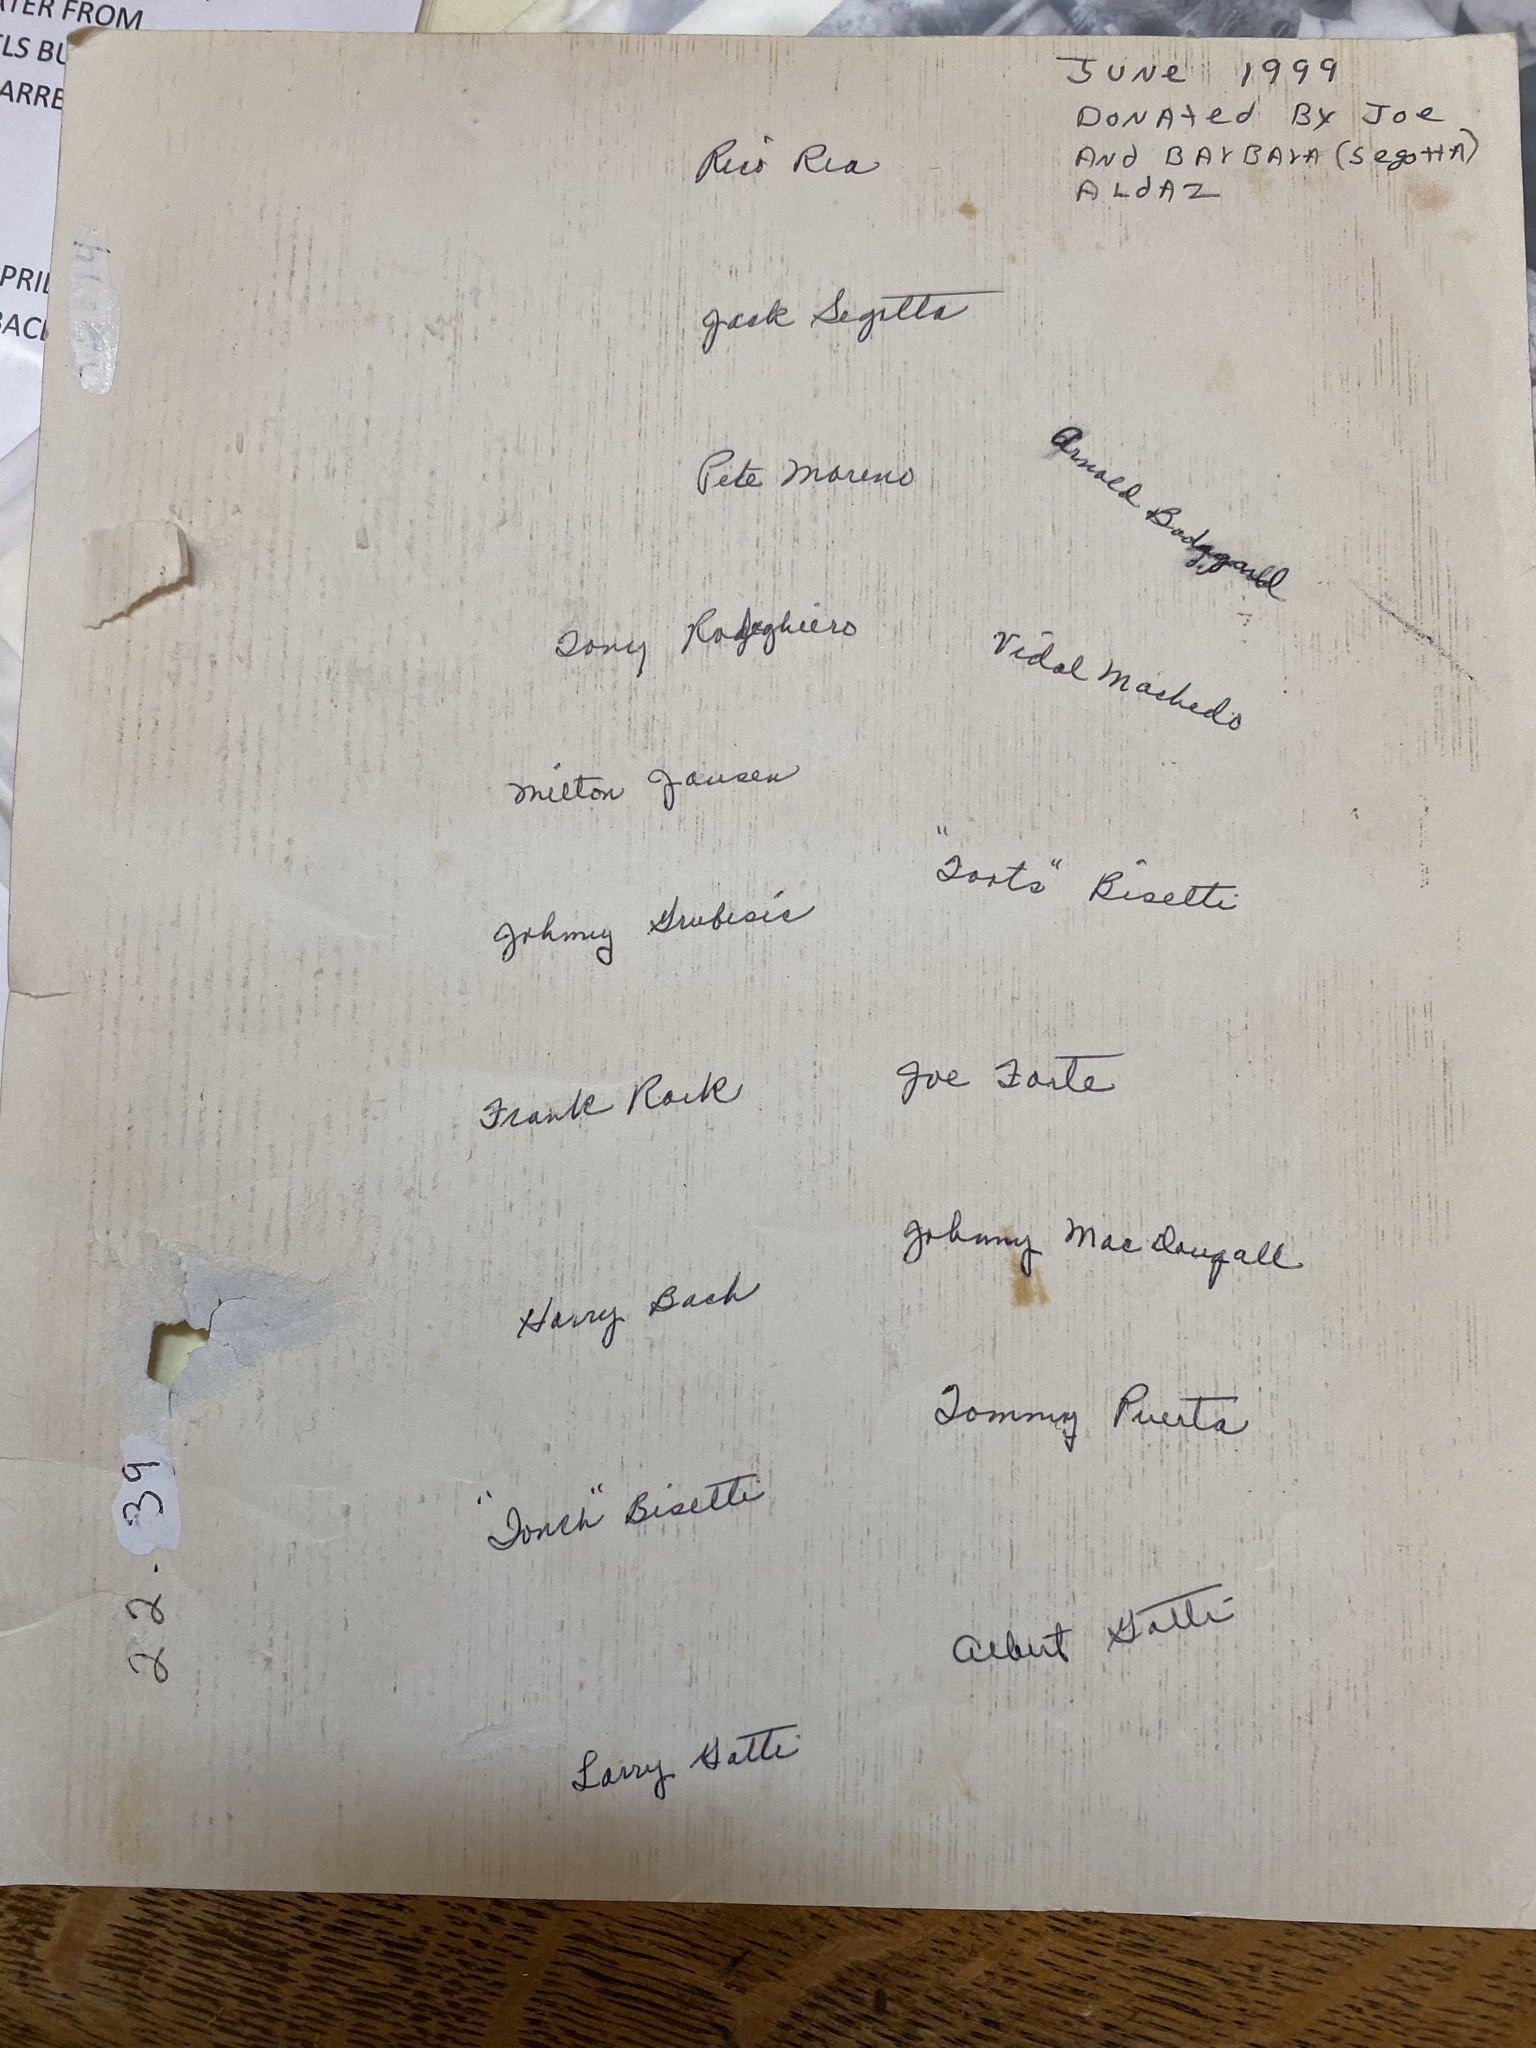 ATER FROM
LS BU
ARRE
PRIL
BACK
JUNe 1999
DONAted BY Joe
ANd BArBArA (SegottA)
ALdAZ
Rico Rea
Jack Segotta
Pete Moreno
Arnold
Tony Rodeghiero
Vidal Machedo
Milton Jansen
"Toots" Bisetti
Johnny Grubisic
Joe Forte
Frank Rock
Johnny MacDougall
Harry Bach
Tommy Puerta
"Tonch" Bisetti
Albert Gatti
Larry Gatti
22-39